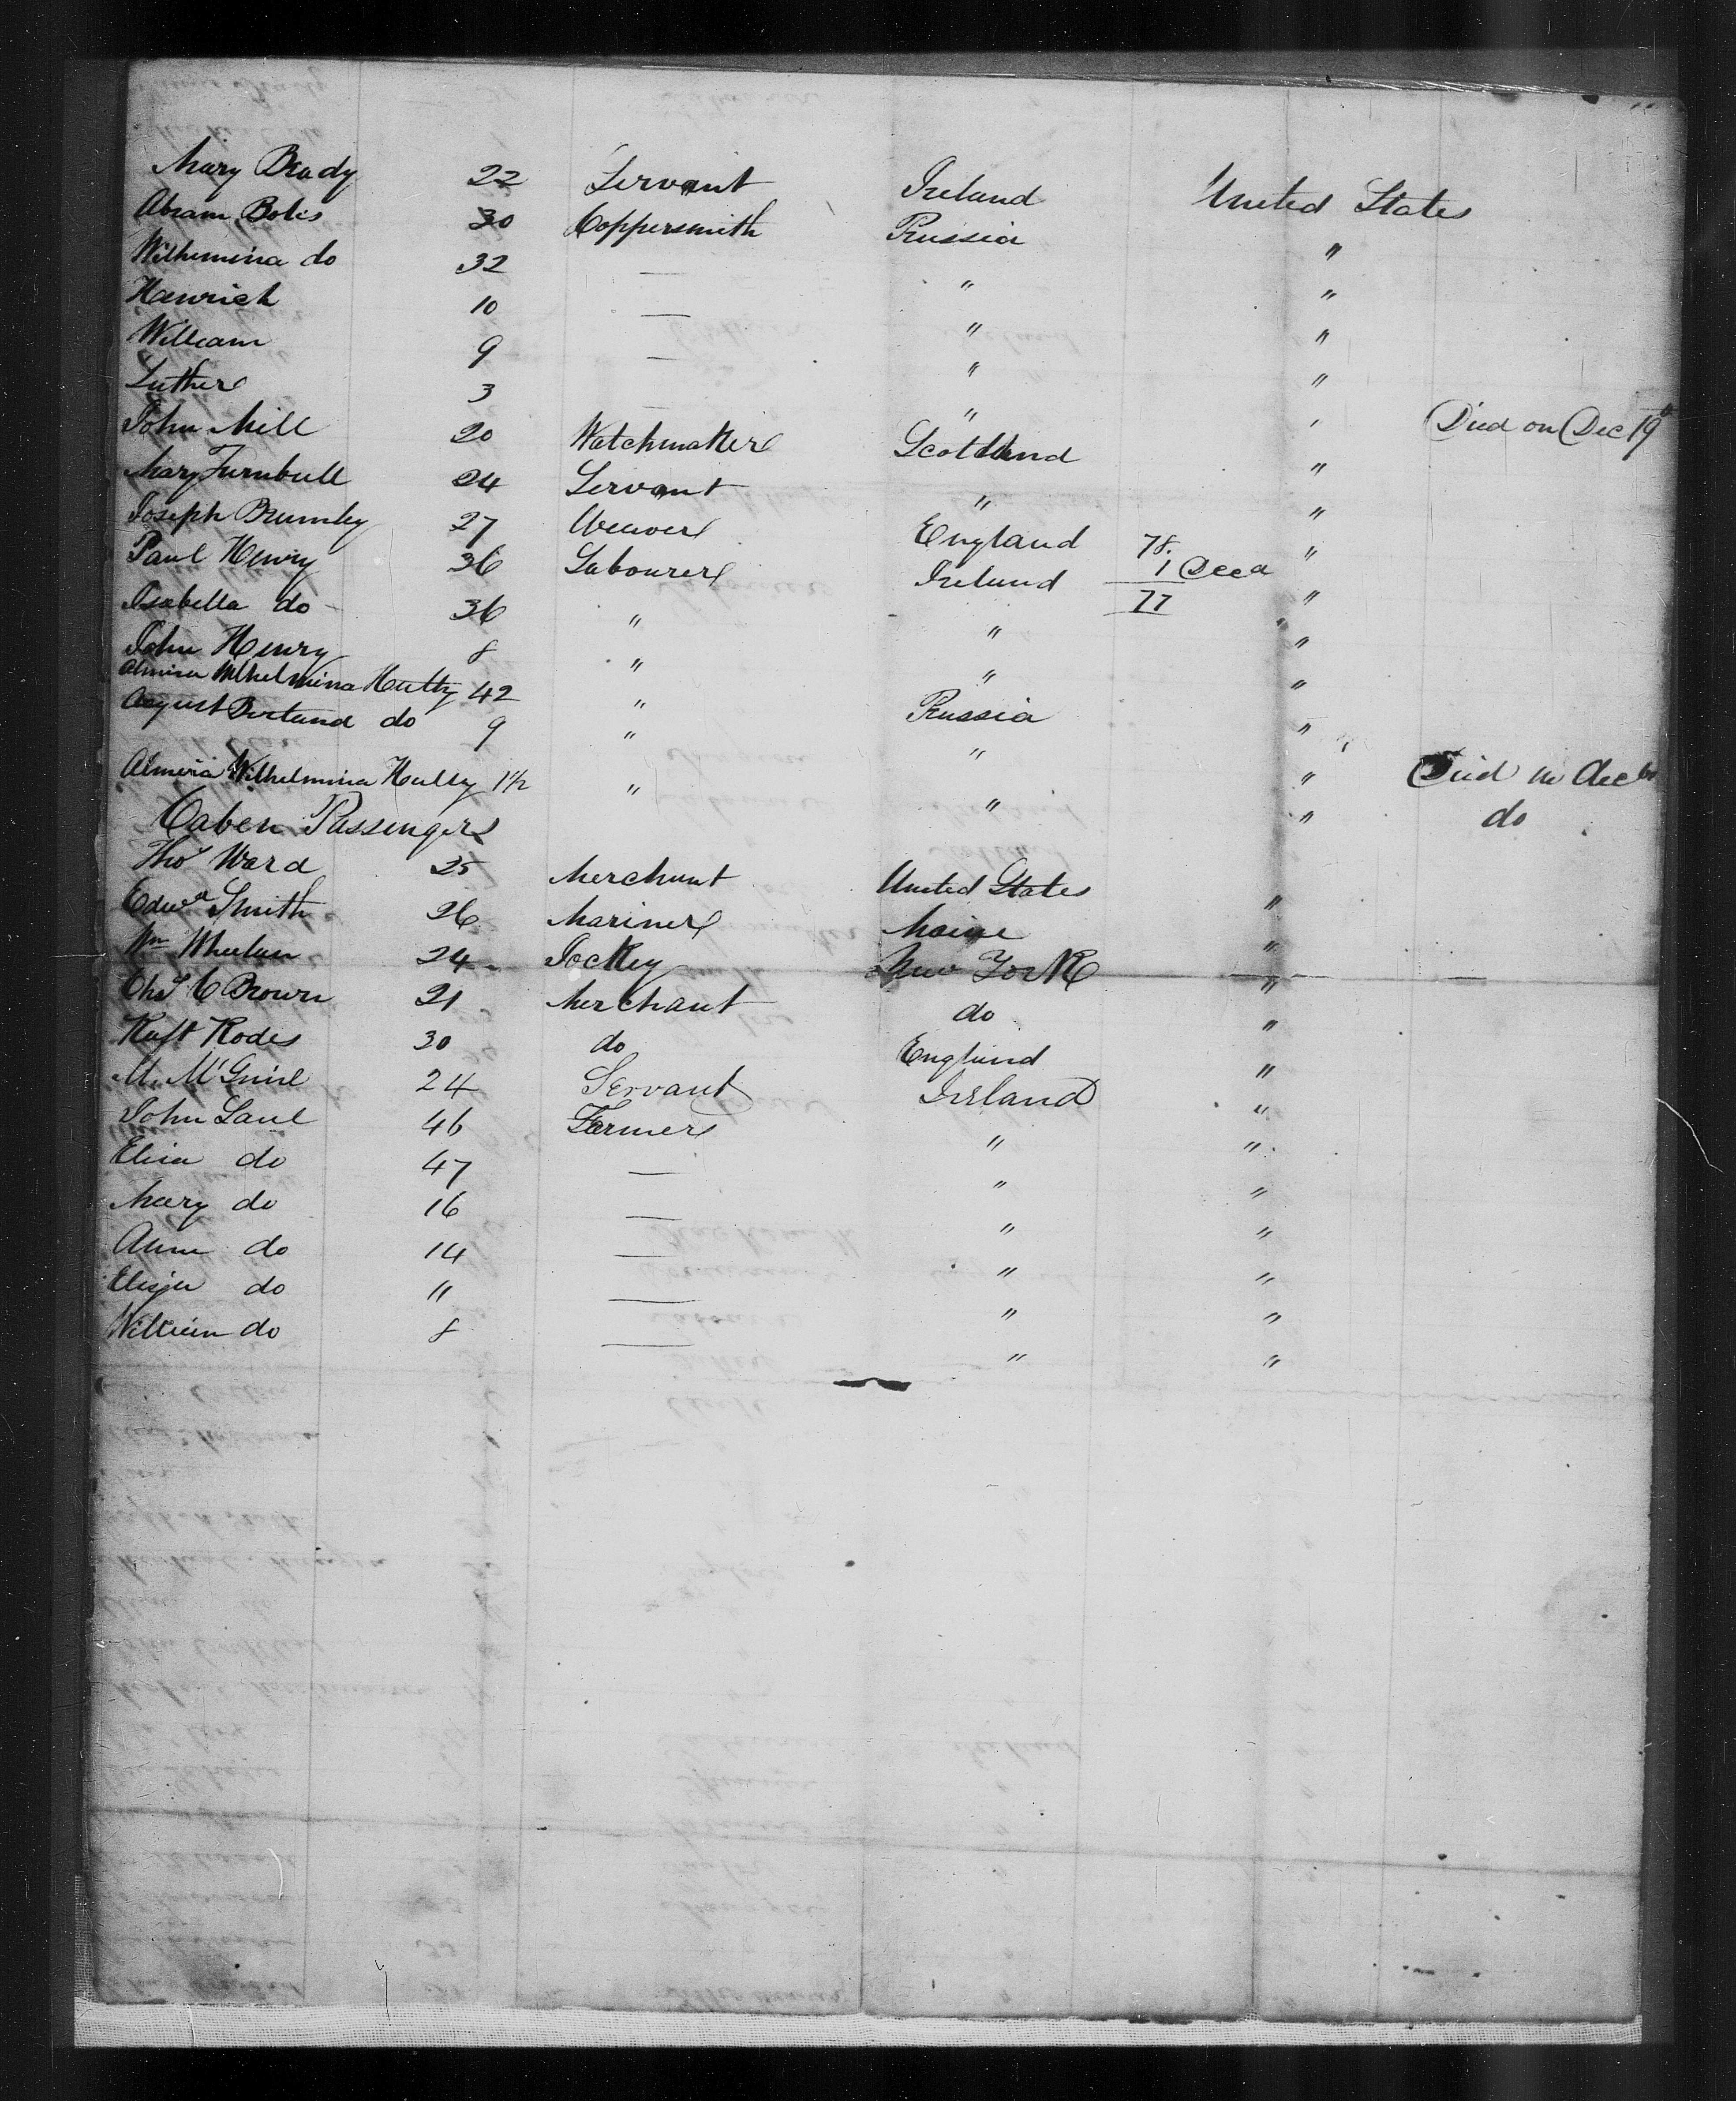 Mary Brady 22 Servant Ireland United States
Abram Boles 30 Coppersmith Prussia "
Wilhemina do 32 — " "
Henrich 10 — " "
William 9 — " "
Luther 3 — " ' Died on Dec 19"
John Mill 20 Watchmaker Scotland "
Mary Turnbull 24 Servant " "
Joseph Brumley 27 Weaver England 78. "
Paul Henry 36 Labourer Ireland 1 Decd "
Isabella do 36 " " 77 "
John Henry 8 " " "
Wilhelmina 42 " Prussia "
August do 9 " " "
Almira Wilhelmina 1½ " " " Died
Caben Passengers " do
Thos Ward 25 Merchant United States "
Edwd Smith 26 Mariner Maine "
Wm Whelan 24 Jockey New York "
Chs C Brown 21 Merchant do "
Kuft Rodes 30 do England "
M. McGuire 24 Servant Ireland "
John Saul 46 Farmer " "
Eliza do 47 — " "
Mary do 16 — " "
Ann do 14 — " "
do 11 — " "
William do 8 — " "